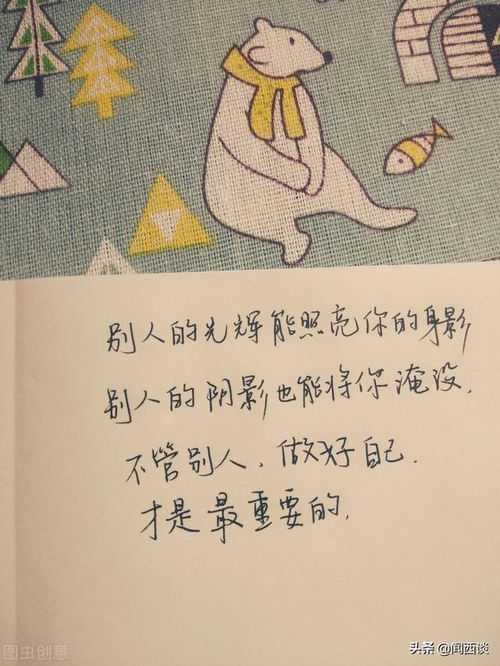 别人的光辉能照亮你的身影
别人的阴影也能将你淹没.
不管别人.做好自己.
才是最重要的.
图虫创意
头条 @闻西谈